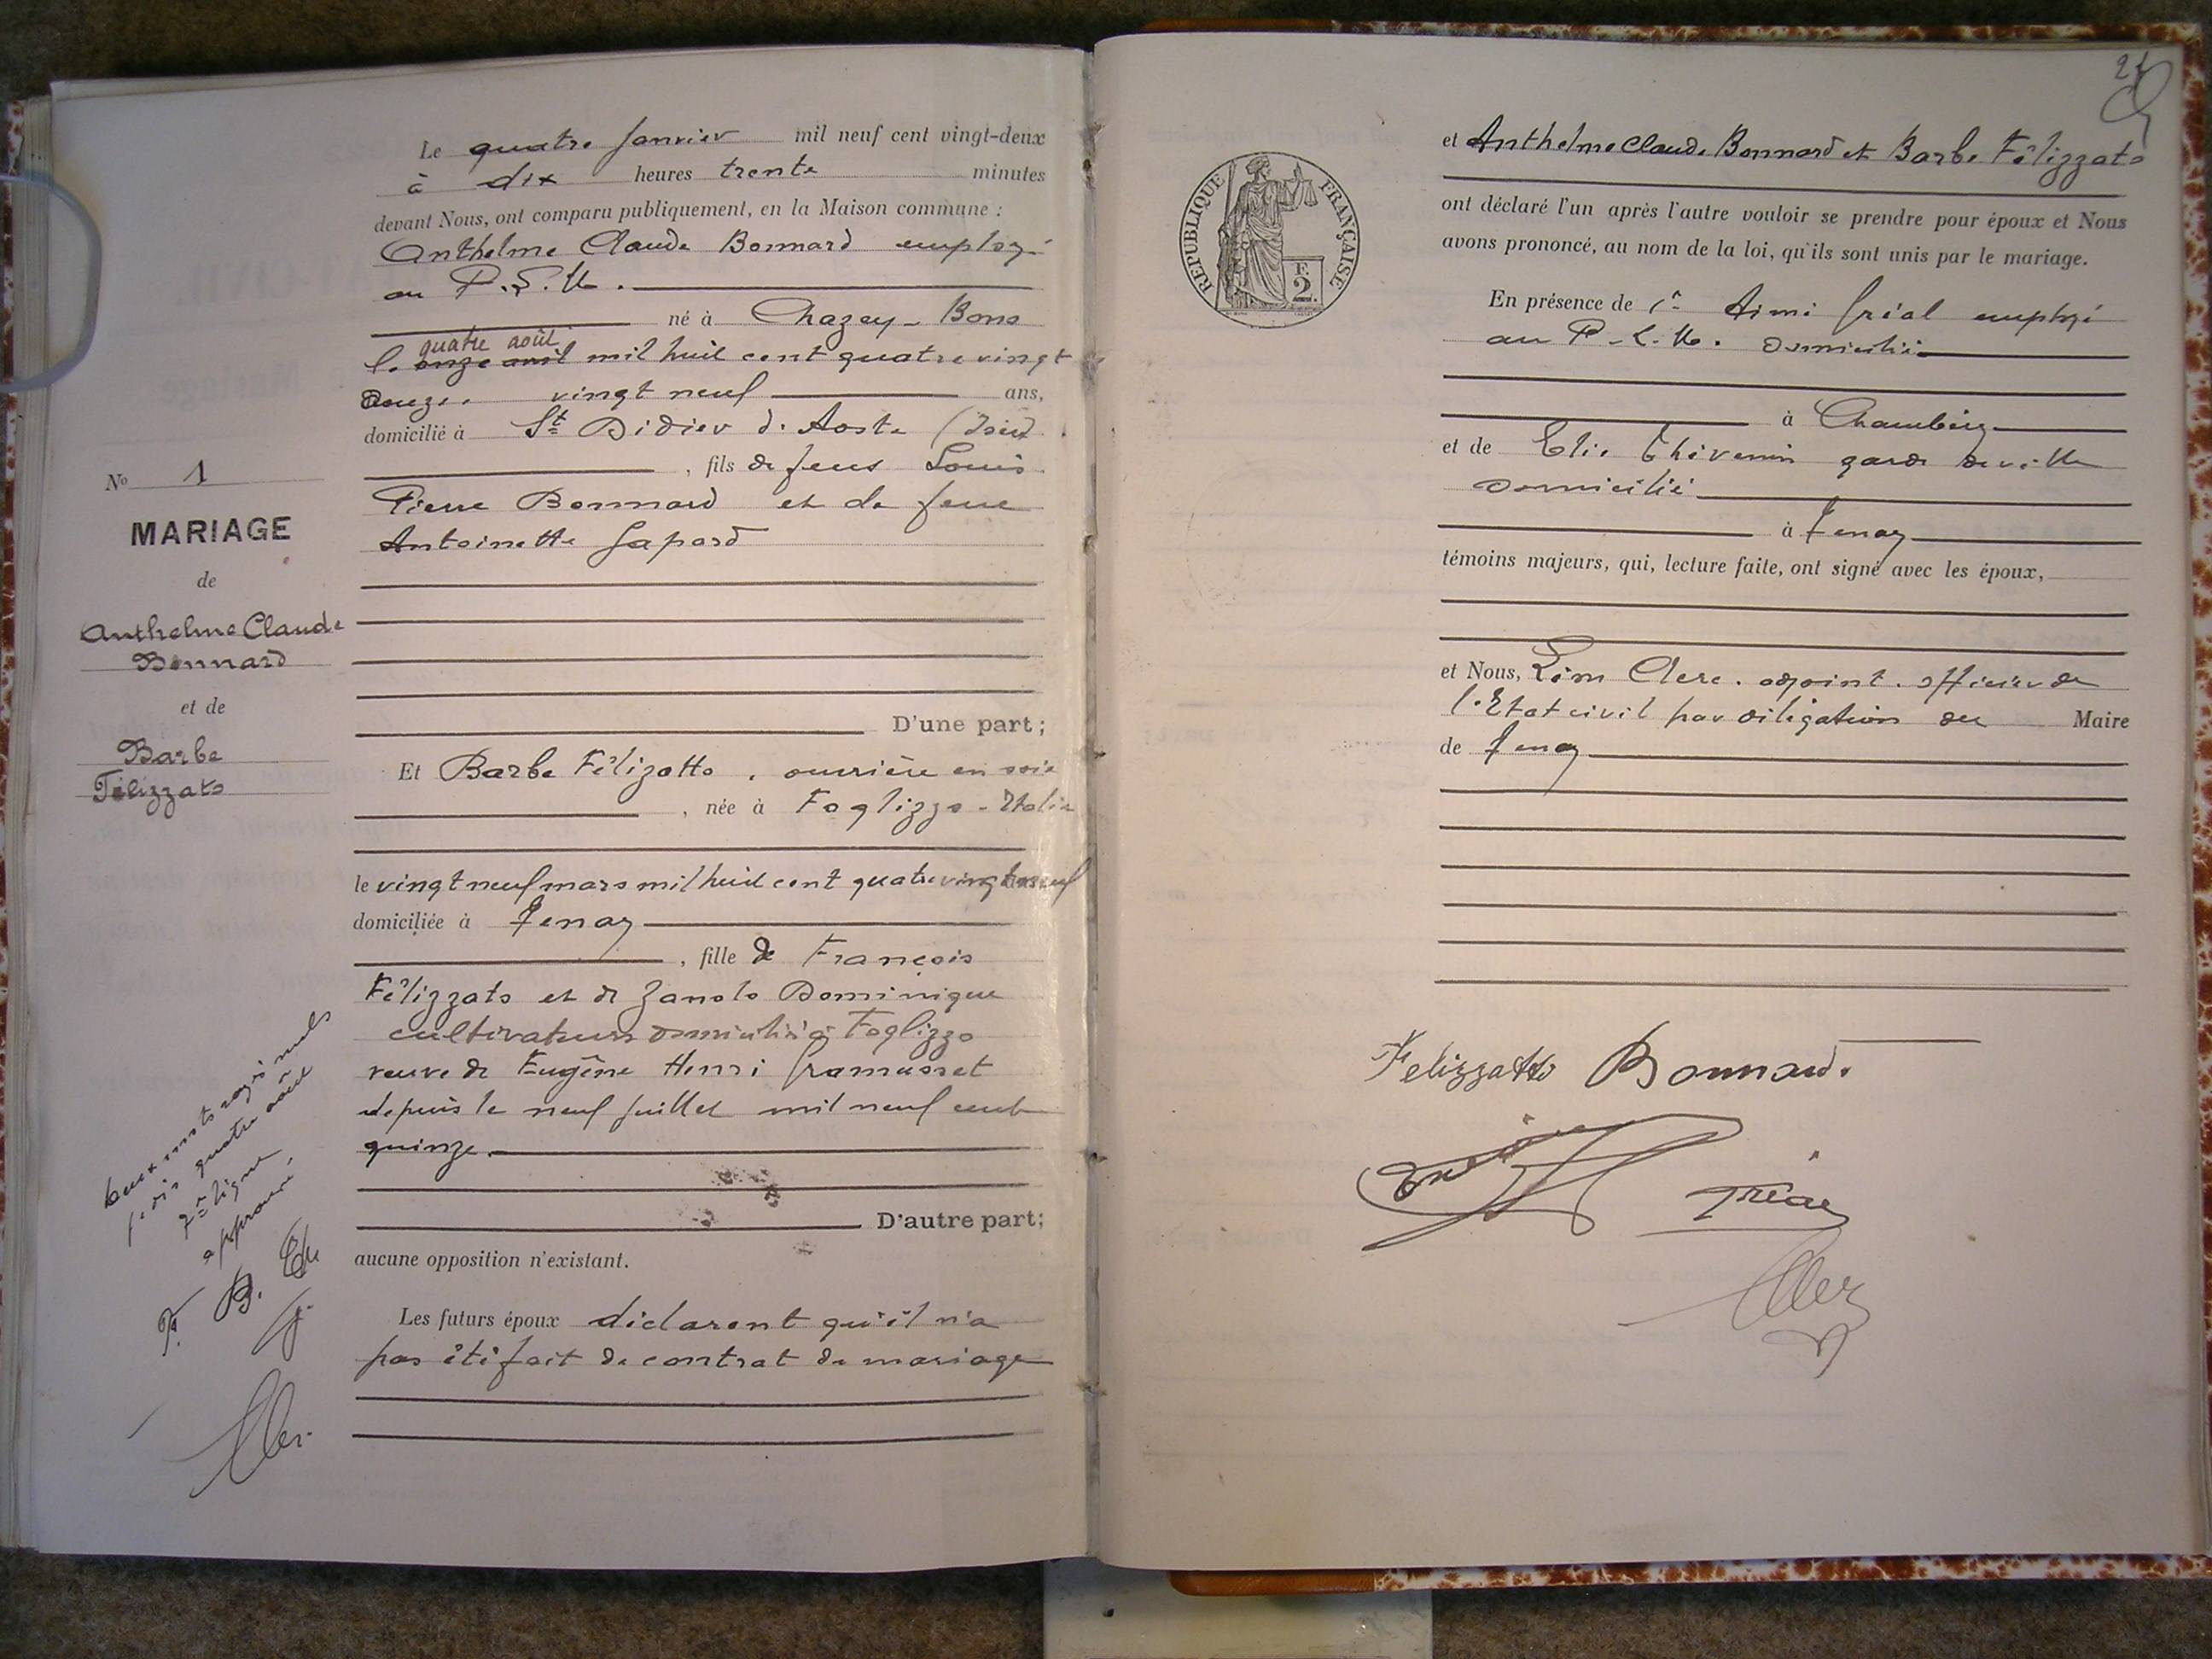 Le quatre Janvier mil neuf cent vingt-deux
à dix heures trente minutes
devant Nous, ont comparu publiquement, en la Maison commune :
Anthelme Claude Bonnard employé
au P.L.M.
né à Chazey-Bons
quatre août
le onze avril mil huit cent quatre vingt
douze. vingt neuf ans,
domicilié à St Didier d'Aoste (Isère)
, fils de feus Louis
Pierre Bonnard et de feue
Antoinette Gapard
D'une part;
Et Barbe Félizatto, ouvrière en soie
, née à Foglizzo-Italie
le vingt neuf mars mil huit cent quatre vingt neuf
domiciliée à Tenay
, fille de François
Félizzato et de Zanolo Dominique
cultivateurs domiciliés à Foglizzo
veuve de Eugène Henri Gramusset
depuis le neuf juillet mil neuf cent
quinze.
D'autre part;
aucune opposition n'existant.
Les futurs époux déclarent qu'il n'a
pas été fait de contrat de mariage
No 1
MARIAGE
de
Anthelme Claude
Bonnard
et de
Barbe
Félizzato
Deux mots rayés nuls
je dis quatre août
7e ligne
approuvé,
F. B. Eh
G.
Clerc
2
RÉPUBLIQUE FRANÇAISE
F.
2
et Anthelme Claude Bonnard et Barbe Félizzato
ont déclaré l'un après l'autre vouloir se prendre pour époux et Nous
avons prononcé, au nom de la loi, qu'ils sont unis par le mariage.
En présence de 1° Aimé Gréal employé
au P.L.M. domicilié
à Chambéry
et de Elie Thévenin garde de ville
domicilié
à Tenay
témoins majeurs, qui, lecture faite, ont signé avec les époux,
et Nous, Léon Clerc. adjoint. officier de
l'Etat civil par délégation du Maire
de Tenay
Felizzatto Bonnard.
Gréal
Clerc